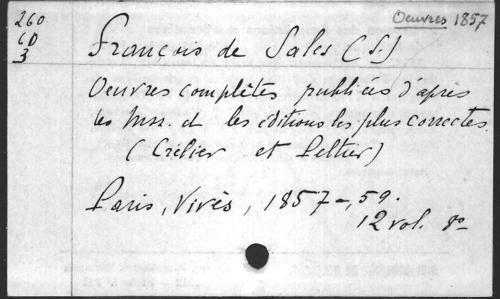 Oeuvres 1857
260
CD
3
François de Sales (S.)
Oeuvres complètes publiées d'après
les mss. et les éditions les plus correctes.
(Crélier et Peltier)
Paris, Vivès, 1857-, 59.
12 vol. 8º